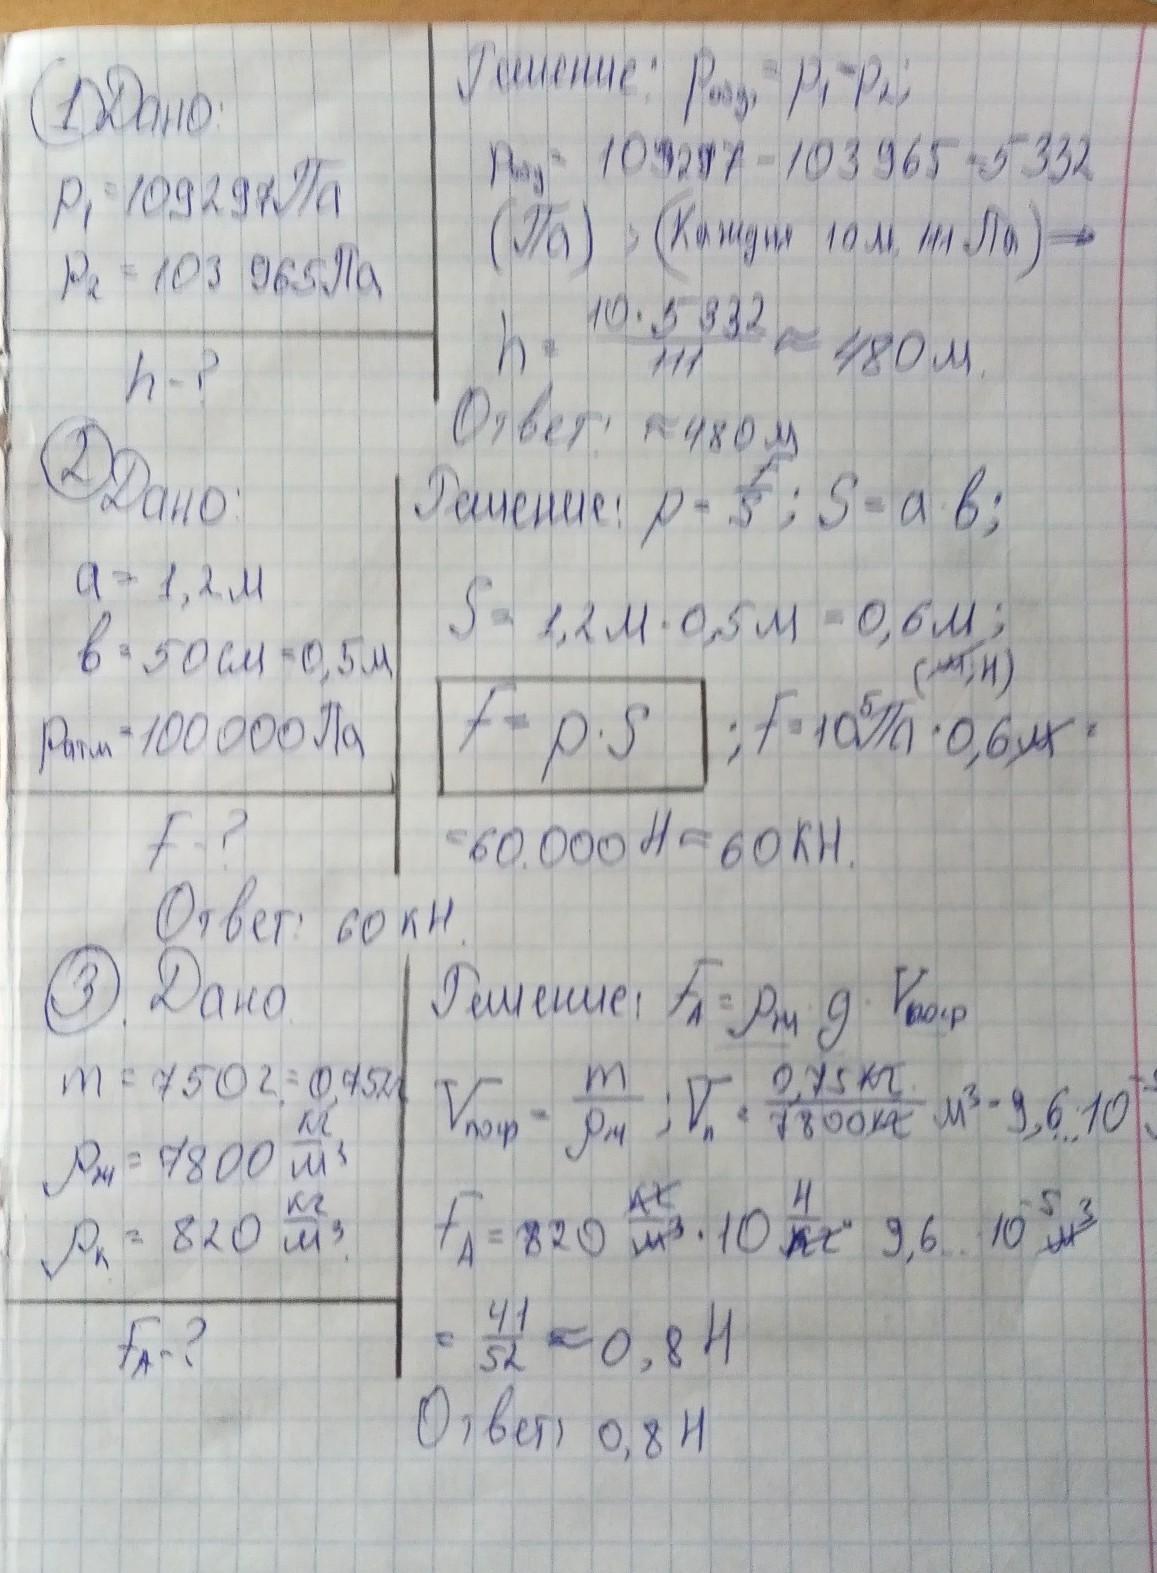 1 Дано:
p₁ = 109297 Па
p₂ = 103 965 Па
h - ?
Решение: p = p₁ - p₂;
p = 109297 - 103 965 = 5332
(Па) ; (Каждые 10 м, 111 Па) ⇒
h = 10 · 5332 / 111 ≈ 480 м.
Ответ: ≈ 480 м
2 Дано:
a = 1,2 м
в = 50 см = 0,5 м
pатм = 100 000 Па
F - ?
Решение: p = F/S ; S = a · в;
S = 1,2 м · 0,5 м = 0,6 м ;
F = p · S ; F = 10⁵ Па · 0,6 м =
= 60.000 Н = 60 кН.
Ответ: 60 кН.
3. Дано
m = 750 г = 0,75 кг
ρж = 7800 кг/м³
ρк = 820 кг/м³.
FА - ?
Решение: FА = ρж · g · Vпогр
Vпогр = m/ρж ; Vп = 0,75 кг / 7800 кг м³ = 9,6..10⁻⁵
FА = 820 кг/м³ · 10 Н/кг · 9,6... 10⁻⁵ м³
= 41/52 ≈ 0,8 Н
Ответ: 0,8 Н